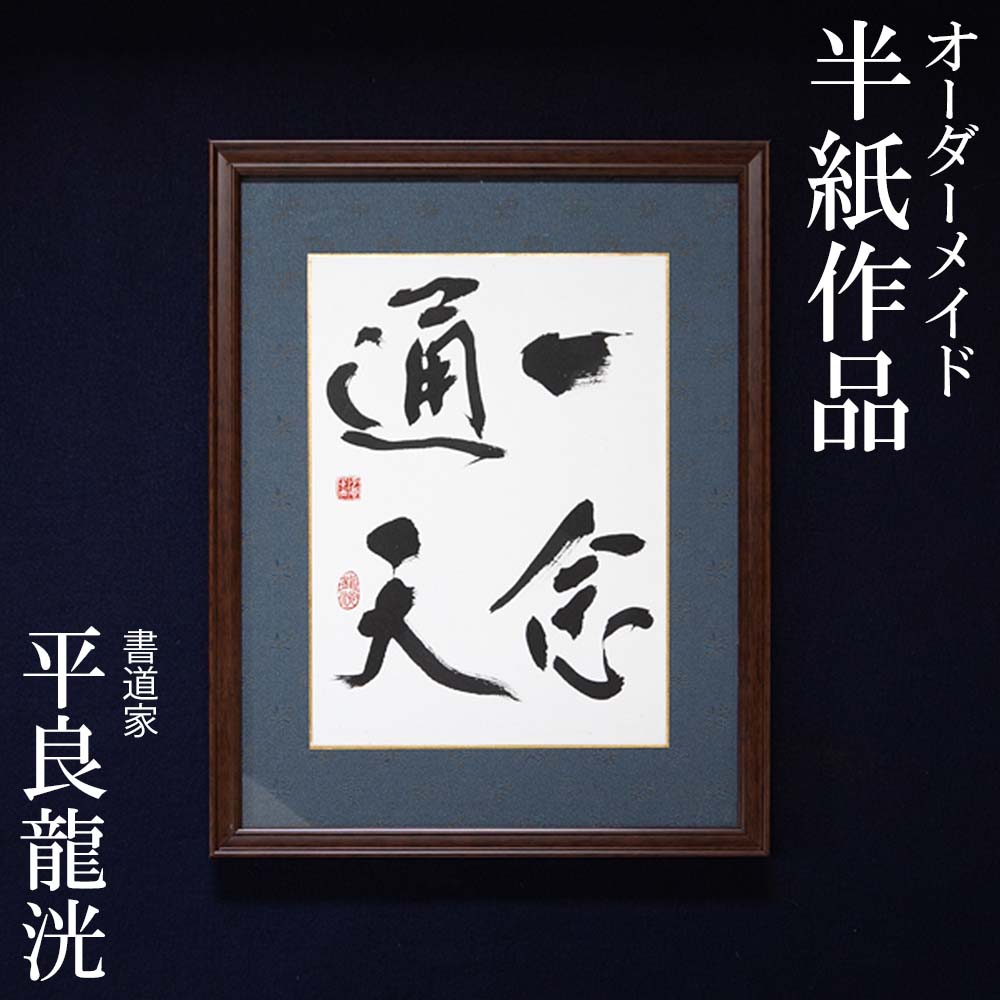 オーダーメイド
半紙作品
一念
通天
書道家
平良龍洸